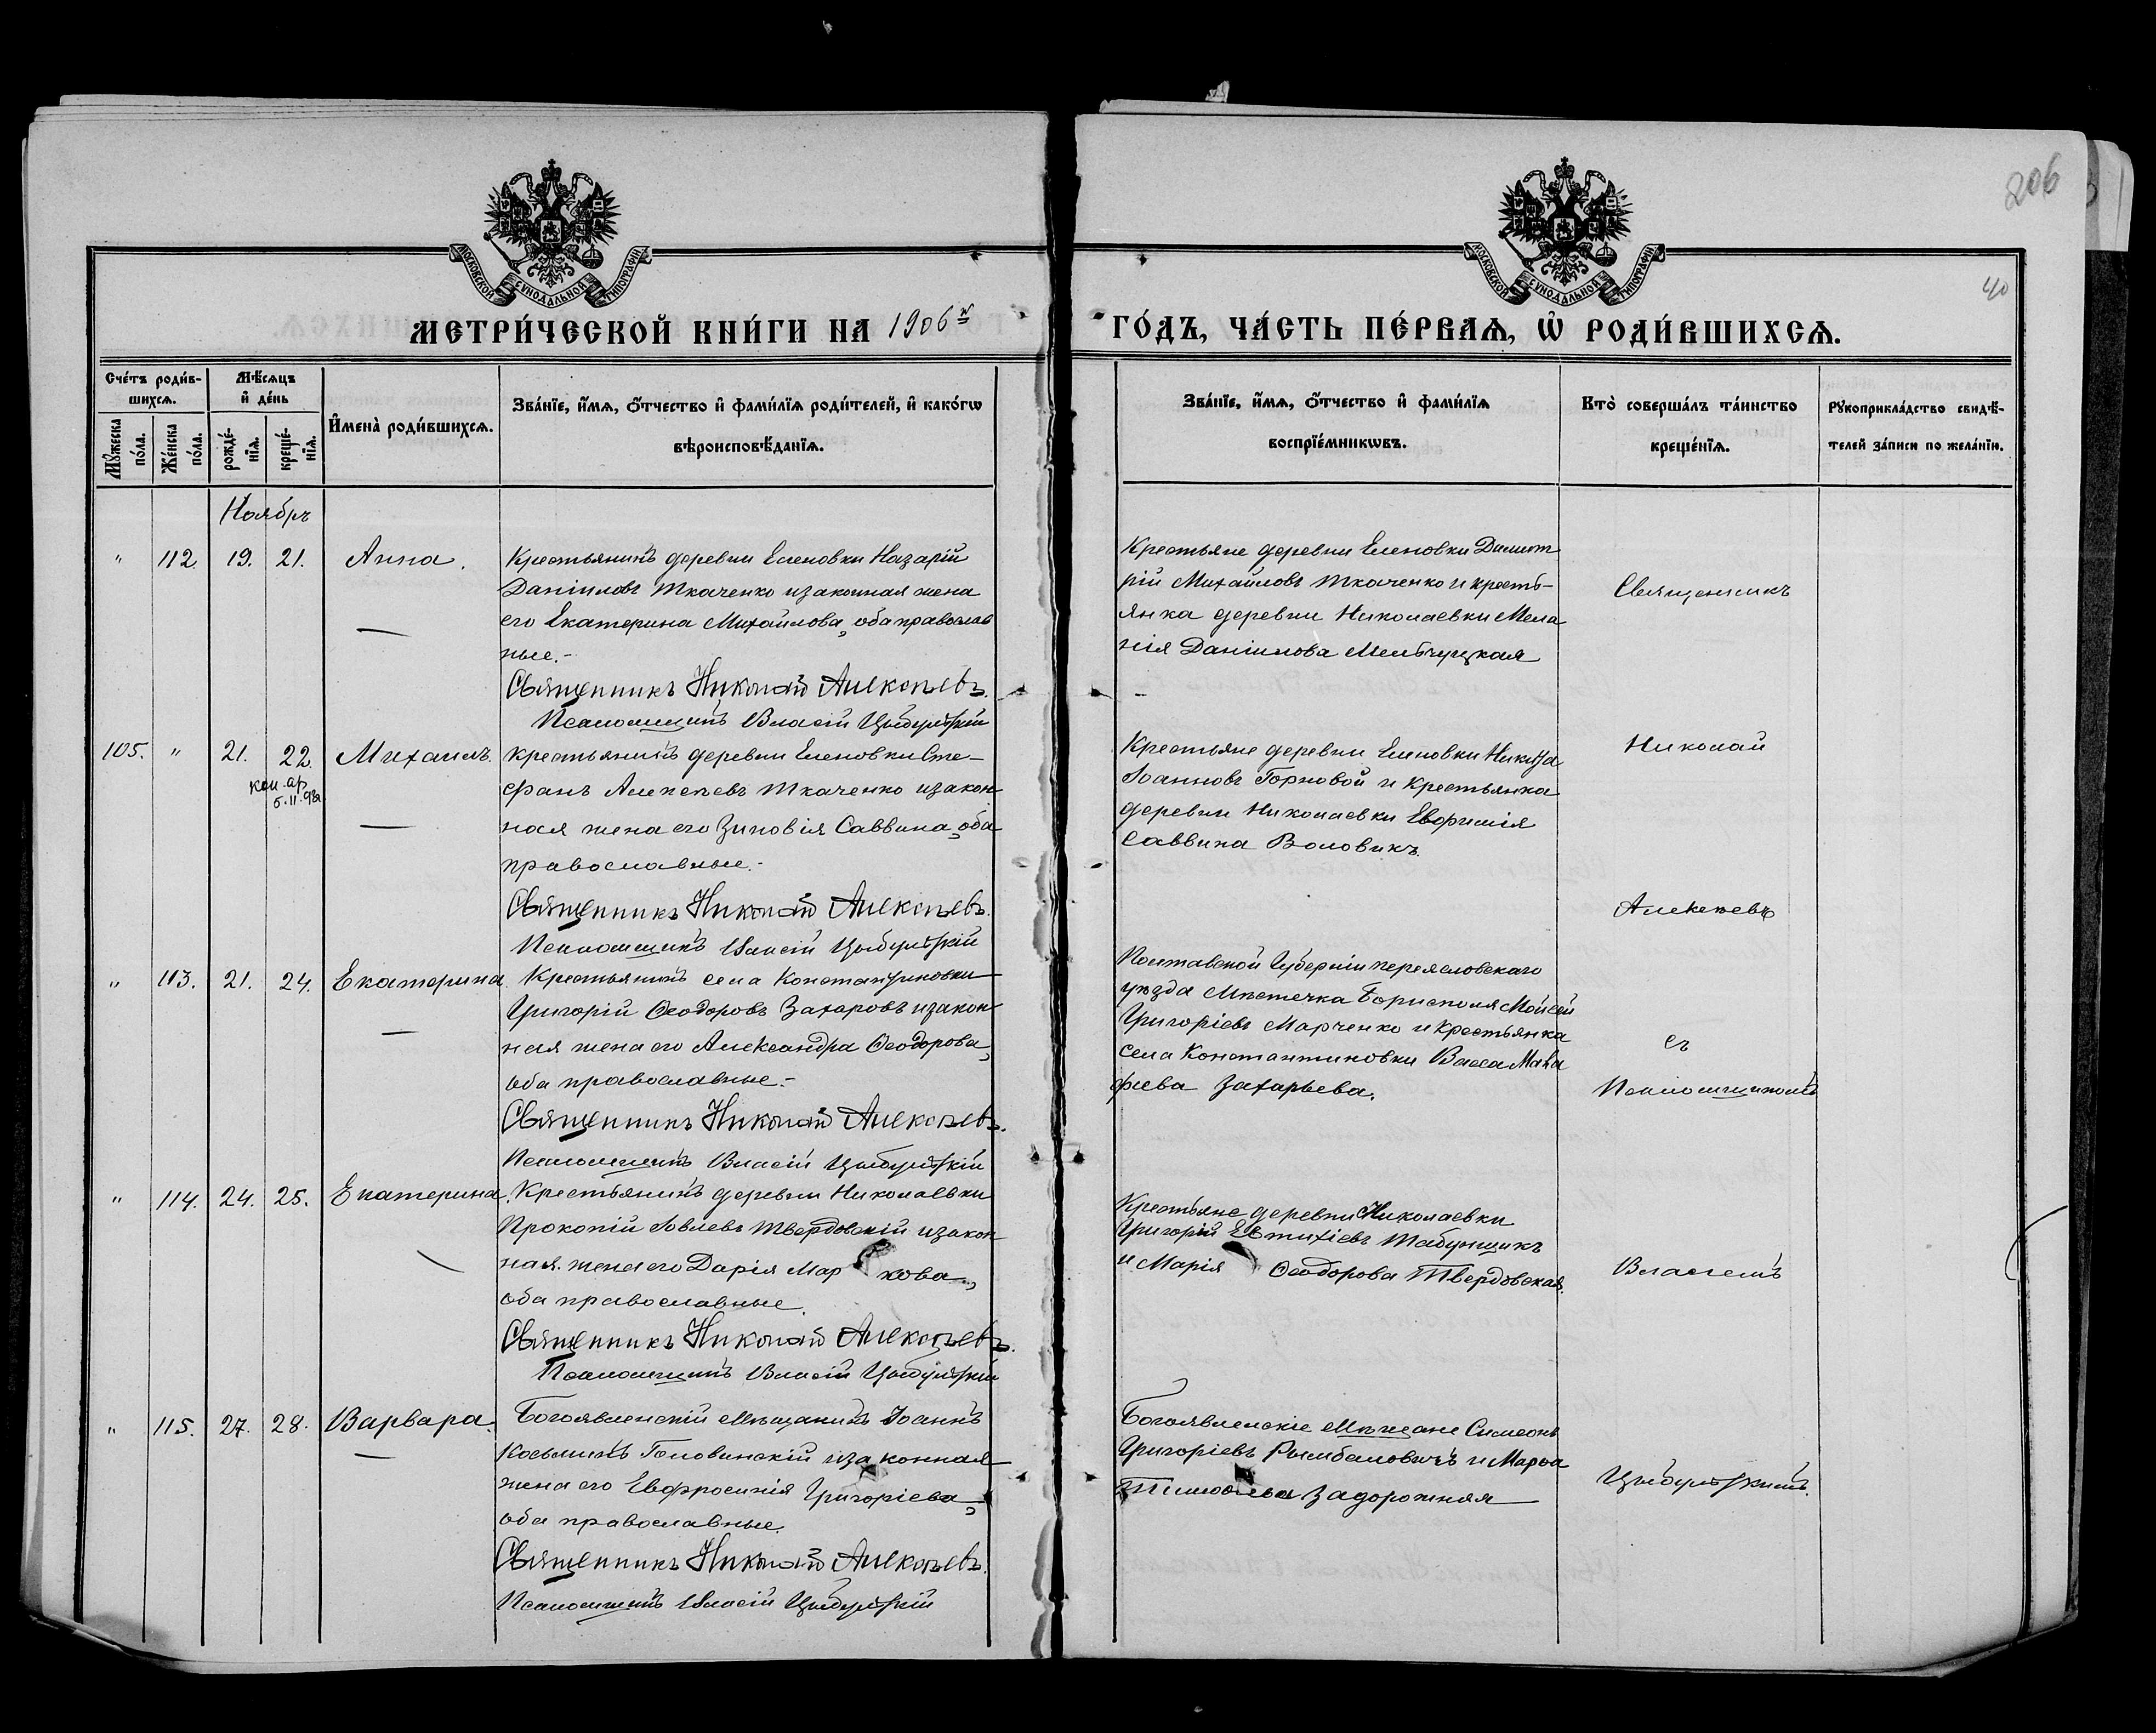 206
40
МОСКОВСКОЙ СУНОДАЛЬНОЙ ТИПОГРАФІИ
МОСКОВСКОЙ СУНОДАЛЬНОЙ ТИПОГРАФІИ
МЕТРИ́ЧЕСКОЙ КНИ́ГИ НА 1906й
ГО́ДЪ, ЧА́СТЬ ПЕ́РВАѦ, Ѽ РОДИ́ВШИХСѦ.
Сче́тъ роди́в-
шихсѧ.
Мꙋ́жеска по́ла.
Же́нска по́ла.
Мѣ́сѧцъ
и҆ де́нь
рожде́-
нїѧ.
креще́-
нїѧ.
И҆мена̀ роди́вшихсѧ.
Зва́нїе, и҆́мѧ, ѻ҆́тчество и҆ фами́лїѧ роди́телей, и҆ како́гѡ
вѣроисповѣ́данїѧ.
Зва́нїе, и҆́мѧ, ѻ҆́тчество и҆ фами́лїѧ
воспрїе́мникѡвъ.
Кто̀ соверша́лъ та́инство
креще́нїѧ.
Рꙋкоприкла́дство свидѣ́-
телей за́писи по жела́нїю.
Ноябрь
" 112. 19. 21. Анна.
Крестьянинъ деревни Еленовки Назарій
Даніиловъ Ткаченко и законная жена
его Екатерина Михайлова, оба православ
ные.-
Священникъ Николай Алексѣевъ.
Псаломщикъ Власій Цыбульскій
Крестьяне деревни Еленовки Димит
рій Михайловъ Ткаченко и кресть-
янка деревни Николаевки Мела
нія Даніилова Мельчуцкая
Священникъ
105. " 21. 22. Михаилъ.
5.11.93г.
крестьянинъ деревни Еленовки Сте-
фанъ Алексѣевъ Ткаченко и закон
ная жена его Зиновія Саввина, оба
православные.-
Священникъ Николай Алексѣевъ.
Псаломщикъ Власій Цыбульскій
Крестьяне деревни Еленовки Никита
Іоанновъ Горновой и крестьянка
деревни Николаевки Евфимія
Саввина Воловикъ.
Николай
Алексѣевъ
" 113. 21. 24. Екатерина.
Крестьянинъ села Константиновки
Григорій Ѳеодоровъ Захаровъ и закон
ная жена его Александра Ѳеодорова,
оба православные.-
Священникъ Николай Алексѣевъ.
Псаломщикъ Власій Цыбульскій
Полтавской Губерніи переясловскаго
уѣзда Мѣстечка Борисполя Мойсей
Григоріевъ Марченко и крестьянка
села Константиновки Васса
фіева Захарьева.
съ
Псаломщикомъ
" 114. 24. 25. Екатерина.
Крестьянинъ деревни Николаевки
Прокопій Іовлевъ Твердовскій и закон
ная жена его Дарія Маркова,
оба православные.
Священникъ Николай Алексѣевъ.
Псаломщикъ Власій Цыбульскій
Крестьяне деревни Николаевки
Григорій Евтихіевъ Табунщикъ
и Марія Ѳеодорова Твердовская.
Власіемъ
" 115. 27. 28. Варвара.
Богоявленскій Мѣщанинъ Іоаннъ
Косьминъ Головинскій и законная
жена его Евфросинія Григоріева,
оба православные.
Священникъ Николай Алексѣевъ.
Псаломщикъ Власій Цыбульскій
Богоявленскіе Мѣщане Симеонъ
Григоріевъ Рымбаловичъ и Марѳа
Задорожняя
Цыбульскимъ.